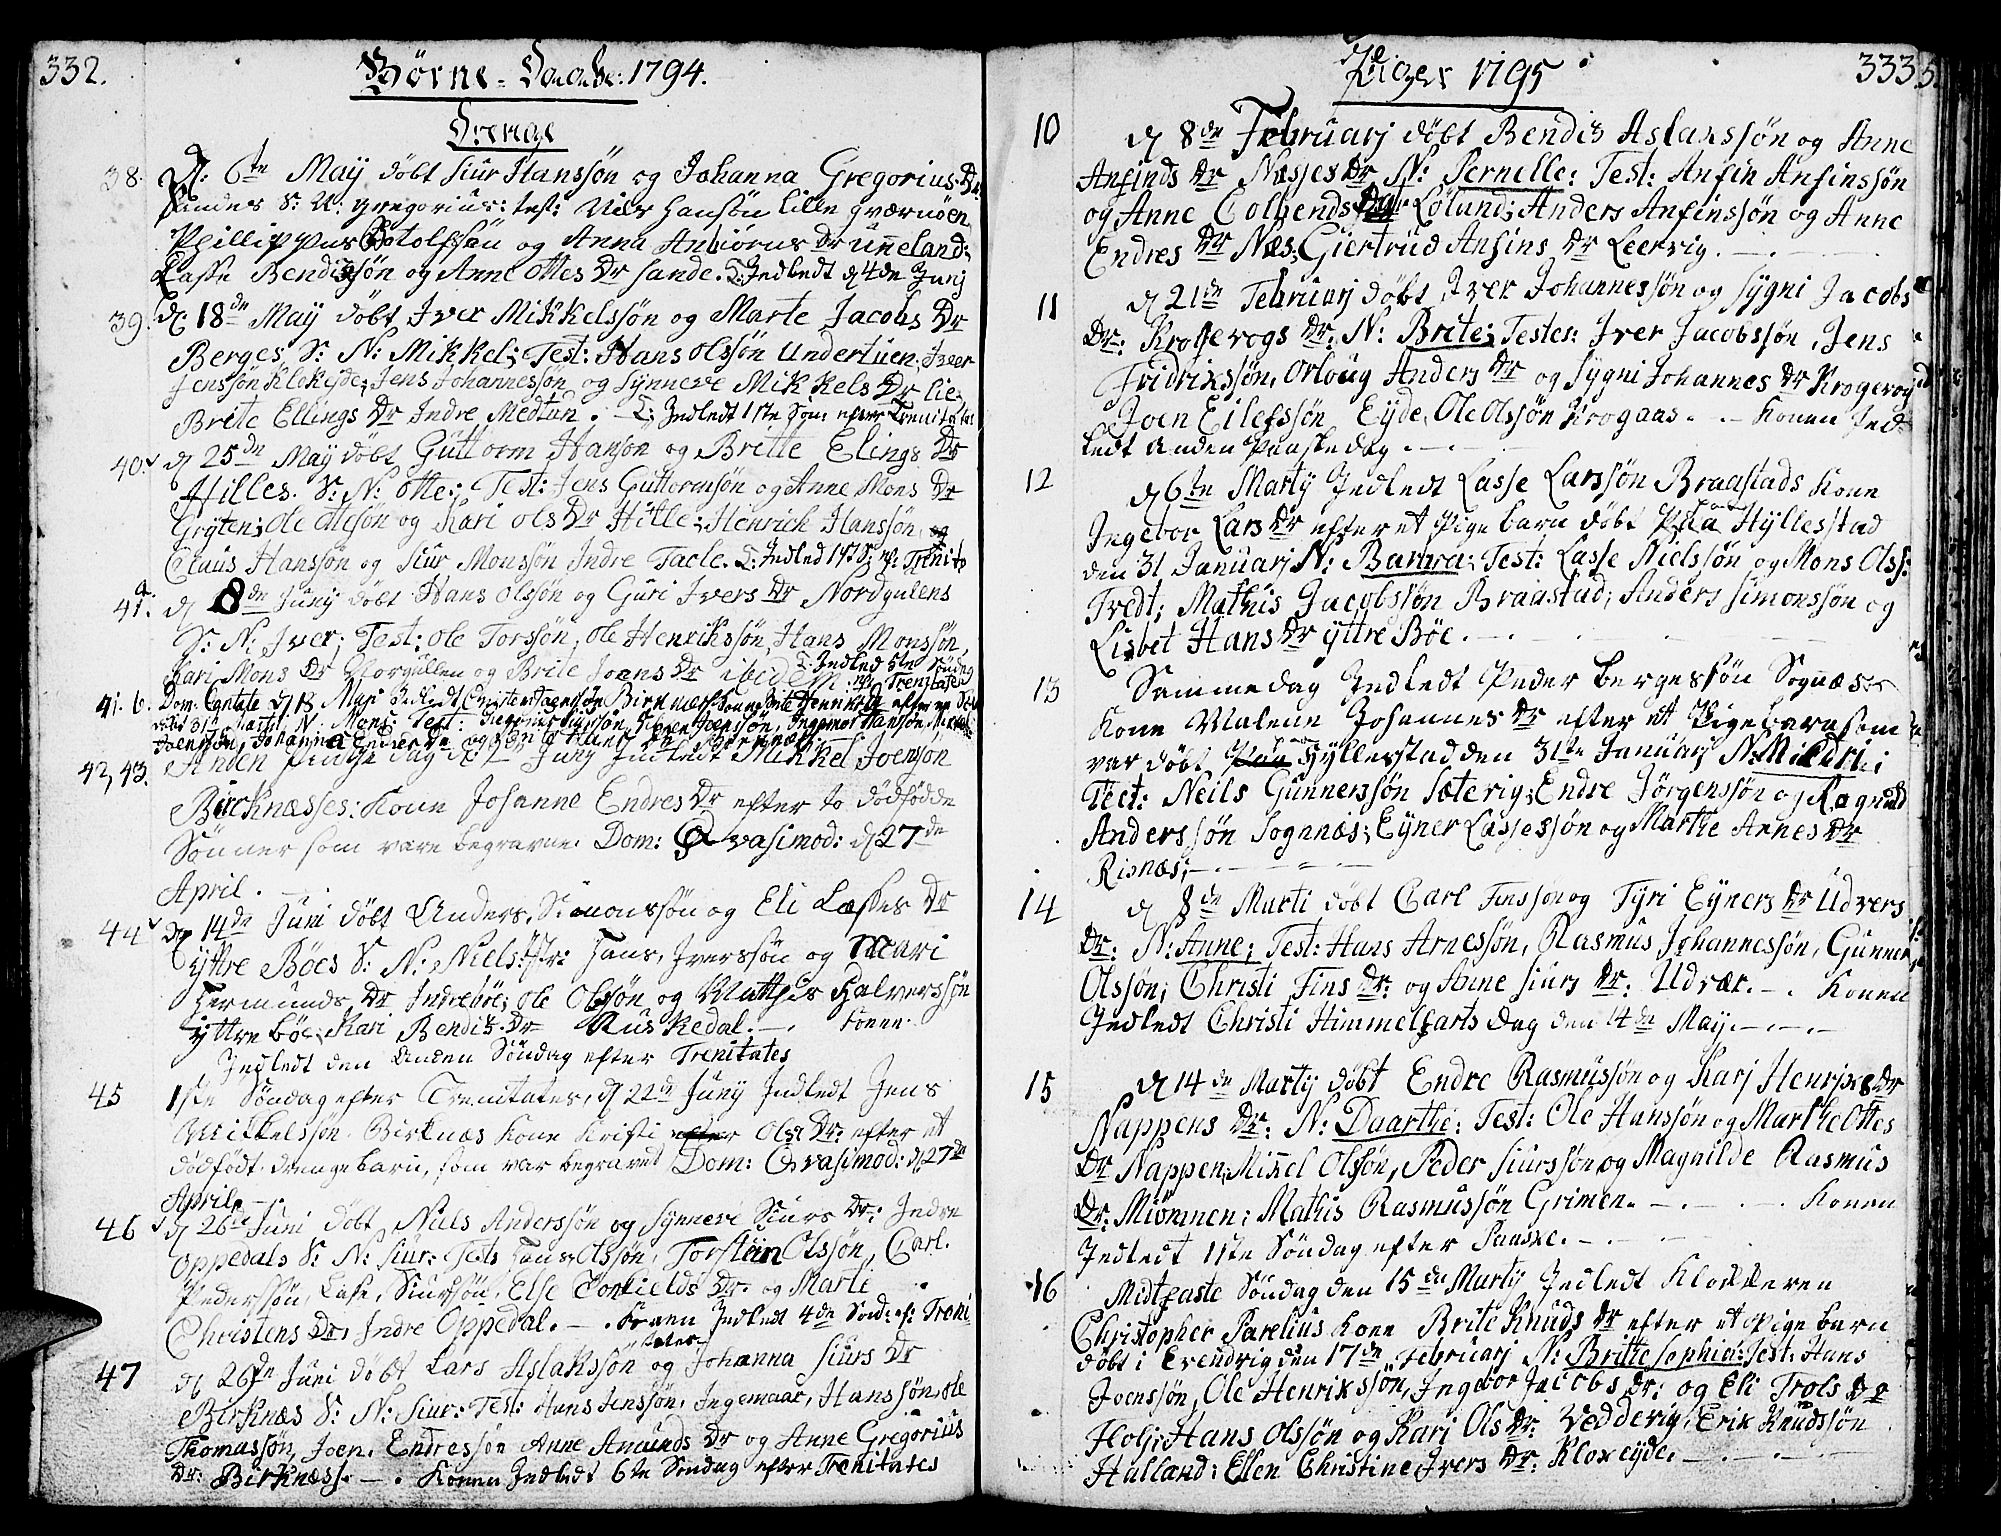 332.
Börne-Daabe: 1794.
Drenge
38. D: 6te May döbt Siur Hanssön og Johanna Gregorius Dr:
Sandes S: N: Gregorius: test: Niels Hansön lille Qværnöen
Phillippus Botolfsøn og Anna Anbiörns Dr Unneland;
Lasse Bendixsøn og Anne Ottes Dr Sande. Q: Indledt d 4de Junj
39. d 18de May döbt Iver Mikkelssön og Marte Jacobs Dr
Berges S: N: Mikkel; Test: Hans Olssön Undertuen, Iver
Jenssön Klokeyde; Jens Johannessön og Synneve Mikkels Dr Lie
Brite Ellings Dr Indre Medtun. - Q: Indledt 1ste Søn: efter Trenitates
40. d 25de May döbt Guttorm Hanssøn og Britte Elings Dr
Hilles. S: N: Otte; Test: Jens Guttormsön og Anne Mons Dr
Gryten; Ole Ottesön og Kari Ols Dr Hille; Henrich Hanssön, og
Claus Hanssön og Siur Monssön Indre Tacle. Q: Indled 1ste S: ef: Trenit
41. a. d 8de Juny döbt Hans Olssön og Guri Ivers Dr Nordgulens
S: N: Iver; Test: Ole Torssön, Ole Henrikssön, Hans Monssön,
Kari Mons Dr Norgullen og Brite Joens Dr ibidem. Q: Indled 5te Söndag
efter Trenitates
41. b. Dom: Cantate d 18 Maji Indledt Christen Joensøn Birknæs Kone Brite Henriks Dr efter en Sön
döbt 31te Martii N: Mons: Test: Gregorius Siursön, Steen Joenssön, Ingemar Hanssön, Mikkel
Joenssön, Johanna Endres Dr og Brite Hans Dr Birknæs.
42, 43. Anden Pintze dag d 9de Juny Indledt Mikkel Joenson
Bircknæsses: Kone Johanne Endres Dr efter to dödfödde
Sönner som vare begravne. Dom: Qvasimod: d 27de
April. -
44 d 14de Juni döbt Anders Simonssön og Eli Lasses Dr
Yttre Böes S: N: Niels: Tstr: Hans, Iverssön og Mari
Hermunds, Dr Indreböe; Ole Olssön og Mathis Halverssön
Yttre böe; Kari Bendix Dr Ruskedal. - Konen
Indledt den Anden Söndag efter Trenitates
45 1ste Söndag efter Trenitates, d 22de Juny Indledt Jens
Mikkelssön Birknæs Kone Kristi efter Ols Dr: efter et
dödfödt drengebarn, som var begravet Dom: Qvasimod: d 27de
April. -
46 d 26de Juni döbt Niels Anderssön og Synneve Siurs Dr: Indre
Oppedals S: N: Siur: Tests Hans Olssön, Torstein Olssön, Carl
Pederssön, Lasse, Siurssön, Else Torkields Dr. og Marte
Christens Dr, Indre Oppedal. - . Konen Indledt 4de Sønd: ef: Treni
tates
47 d 26de Juni döbt Lars Aslakssön og Johanna Siurs Dr
Birknæs S: N: Siur: Test: Hans Jenssön, Ingemaar, Hanssön, Ole
Thomassön, Joen, Endressön Anne Amunds Dr og Anne Gregorius
Dr: Birknæs. - . Konen Indledt 6te Søndag efter Trenitates
Piger 1795
333
10 d 8de Februarj döbt Bendix Aslakssön og Anne
Anfinds Dr Næsjes Dr N: Pernelle: Test: Anfin Anfinssön
og Anne Colbends Dr Lölund; Anders Anfinssön og Anne
Endres Dr Næs; Giertrud Anfins Dr Leervig. -
11 d 21de Februarj döbt Iver Johannessön og Sygni Jacobs
Dr: Krogevogs Dr: N: Brite; Testes: Iver Jacobssön, Jens
Fridrikssön, Orloug Anders Dr og Sygni Johannes Dr Krogevog
Joen Eilefssön Eyde, Ole Olssön Krogaas. - Konen Ind-
ledt Anden Paaske dag. -
12 d 6te Martij Indledt Lasse Larssön Braastads Kone
Ingebor Lars Dr efter et Pige barn döbt Paa Hyllestad
den 31 Januarj N: Barbra: Test: Lasse Nielssön og Mons Ols:
Tredt; Mathis Jacobssön Braastad; Anders Simonssön og
Lisbet Hans Dr Yttre Böe. -
13 Samme dag Indledt Peder Bergessön Sognæs
Kone Malene Johannes Dr efter et Pige barn som
var döbt Paa Hyllestad den 31te Januarj N: Mildri;
Test: Neils Gunnerssön Sæterig; Endre Jörgenssön og Ragnild
Anderssön Sognnæs; Eyner Lassessön og Marthe Arnes Dr
Risnæs; -
14 d 8de Marti döbt Carl Finsson og Tyri Eyners Dr Udvers
Dr: N: Anne; Test: Hans Arnessön, Rasmus Johannessön, Gunner
Olssön; Christi Fins Dr: og Anne Siurs Dr: Udvær. - Konen
Indledt Christi Himmelfarts Dag den 14de May. -
15 d 14de Martij döbt Endre Rasmussön og Karj Henrixs Dr
Nappens Dr: N: Daarthe: Test: Ole Hanssön og Marthe Ottes
Dr Nappen; Mikel Olssön, Peder Siurssön og Magnilde Rasmus
Dr: Miömnen; Mathis Rasmussön Grimen. - Konen
Indledt 1ste Söndag efter Paaske. -
16 Midtfaste Söndag den 15de Martij Indledt Klokkeren
Christopher Parelius Kone Brite Knuds Dr efter et Pige barn
döbt i Evendvig den 17de Februarj N: Britte Sophia: Test: Hans
Joenssön, Ole Henrikssön, Ingebor Jacobs Dr: og Eli Trols Dr
Holj; Hans Olssön og Kari Ols Dr: Vedderig, Erik Knudssön
Halland; Ellen Christine Ivers Dr: Kloxeyde. -